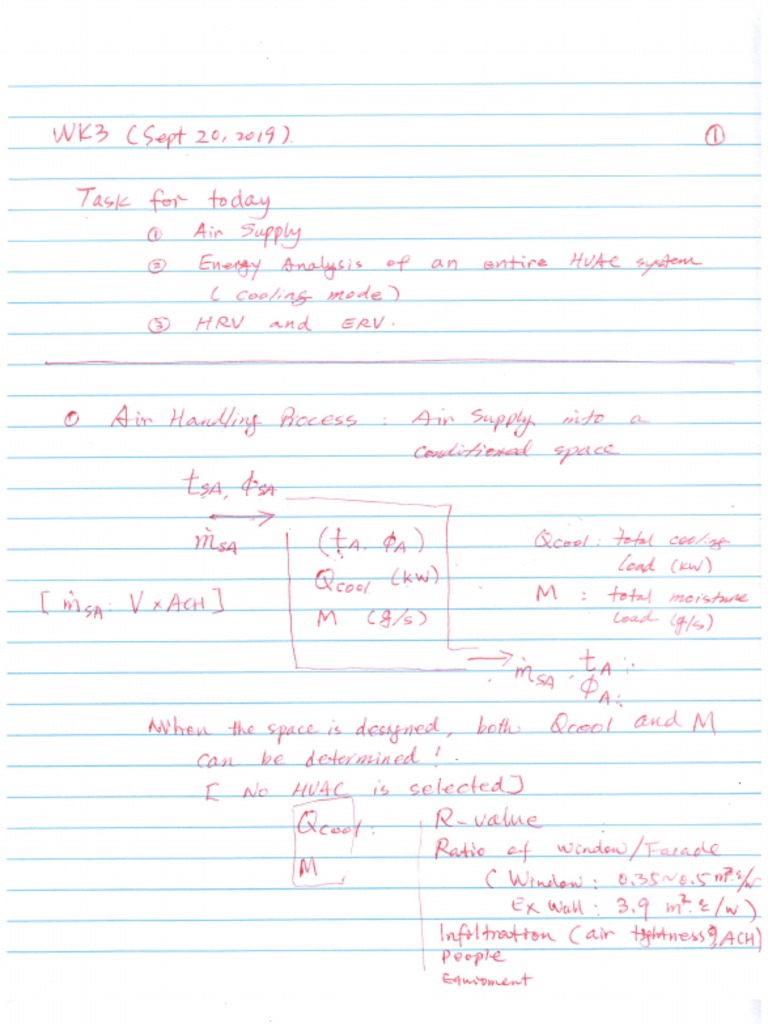 WK3 (Sept 20, 2019).
①
Task for today
① Air Supply
② Energy Analysis of an entire HVAC system
( cooling mode )
③ HRV and ERV.
Air Handling Process : Air Supply into a
conditioned space
tSA, ϕSA
ṁSA
[ ṁSA : V × ACH ]
(tA, ϕA)
Qcool (kW)
M (g/s)
Qcool : total cooling
load (kW)
M : total moisture
load (g/s)
ṁSA, tA
ϕA
When the space is designed, both Qcool and M
can be determined !
[ No HVAC is selected ]
Qcool :
M
R-value
Ratio of window/Facade
( Window : 0.35~0.5 m².℃/w
Ex Wall : 3.9 m².℃/w )
Infiltration (air tightness, ACH)
People
Equipment